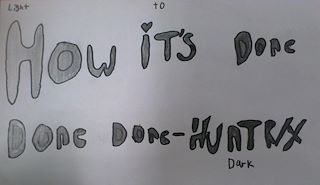 Light to
HOW iT'S DONE
DONE DONE-HUNTR/X
Dark